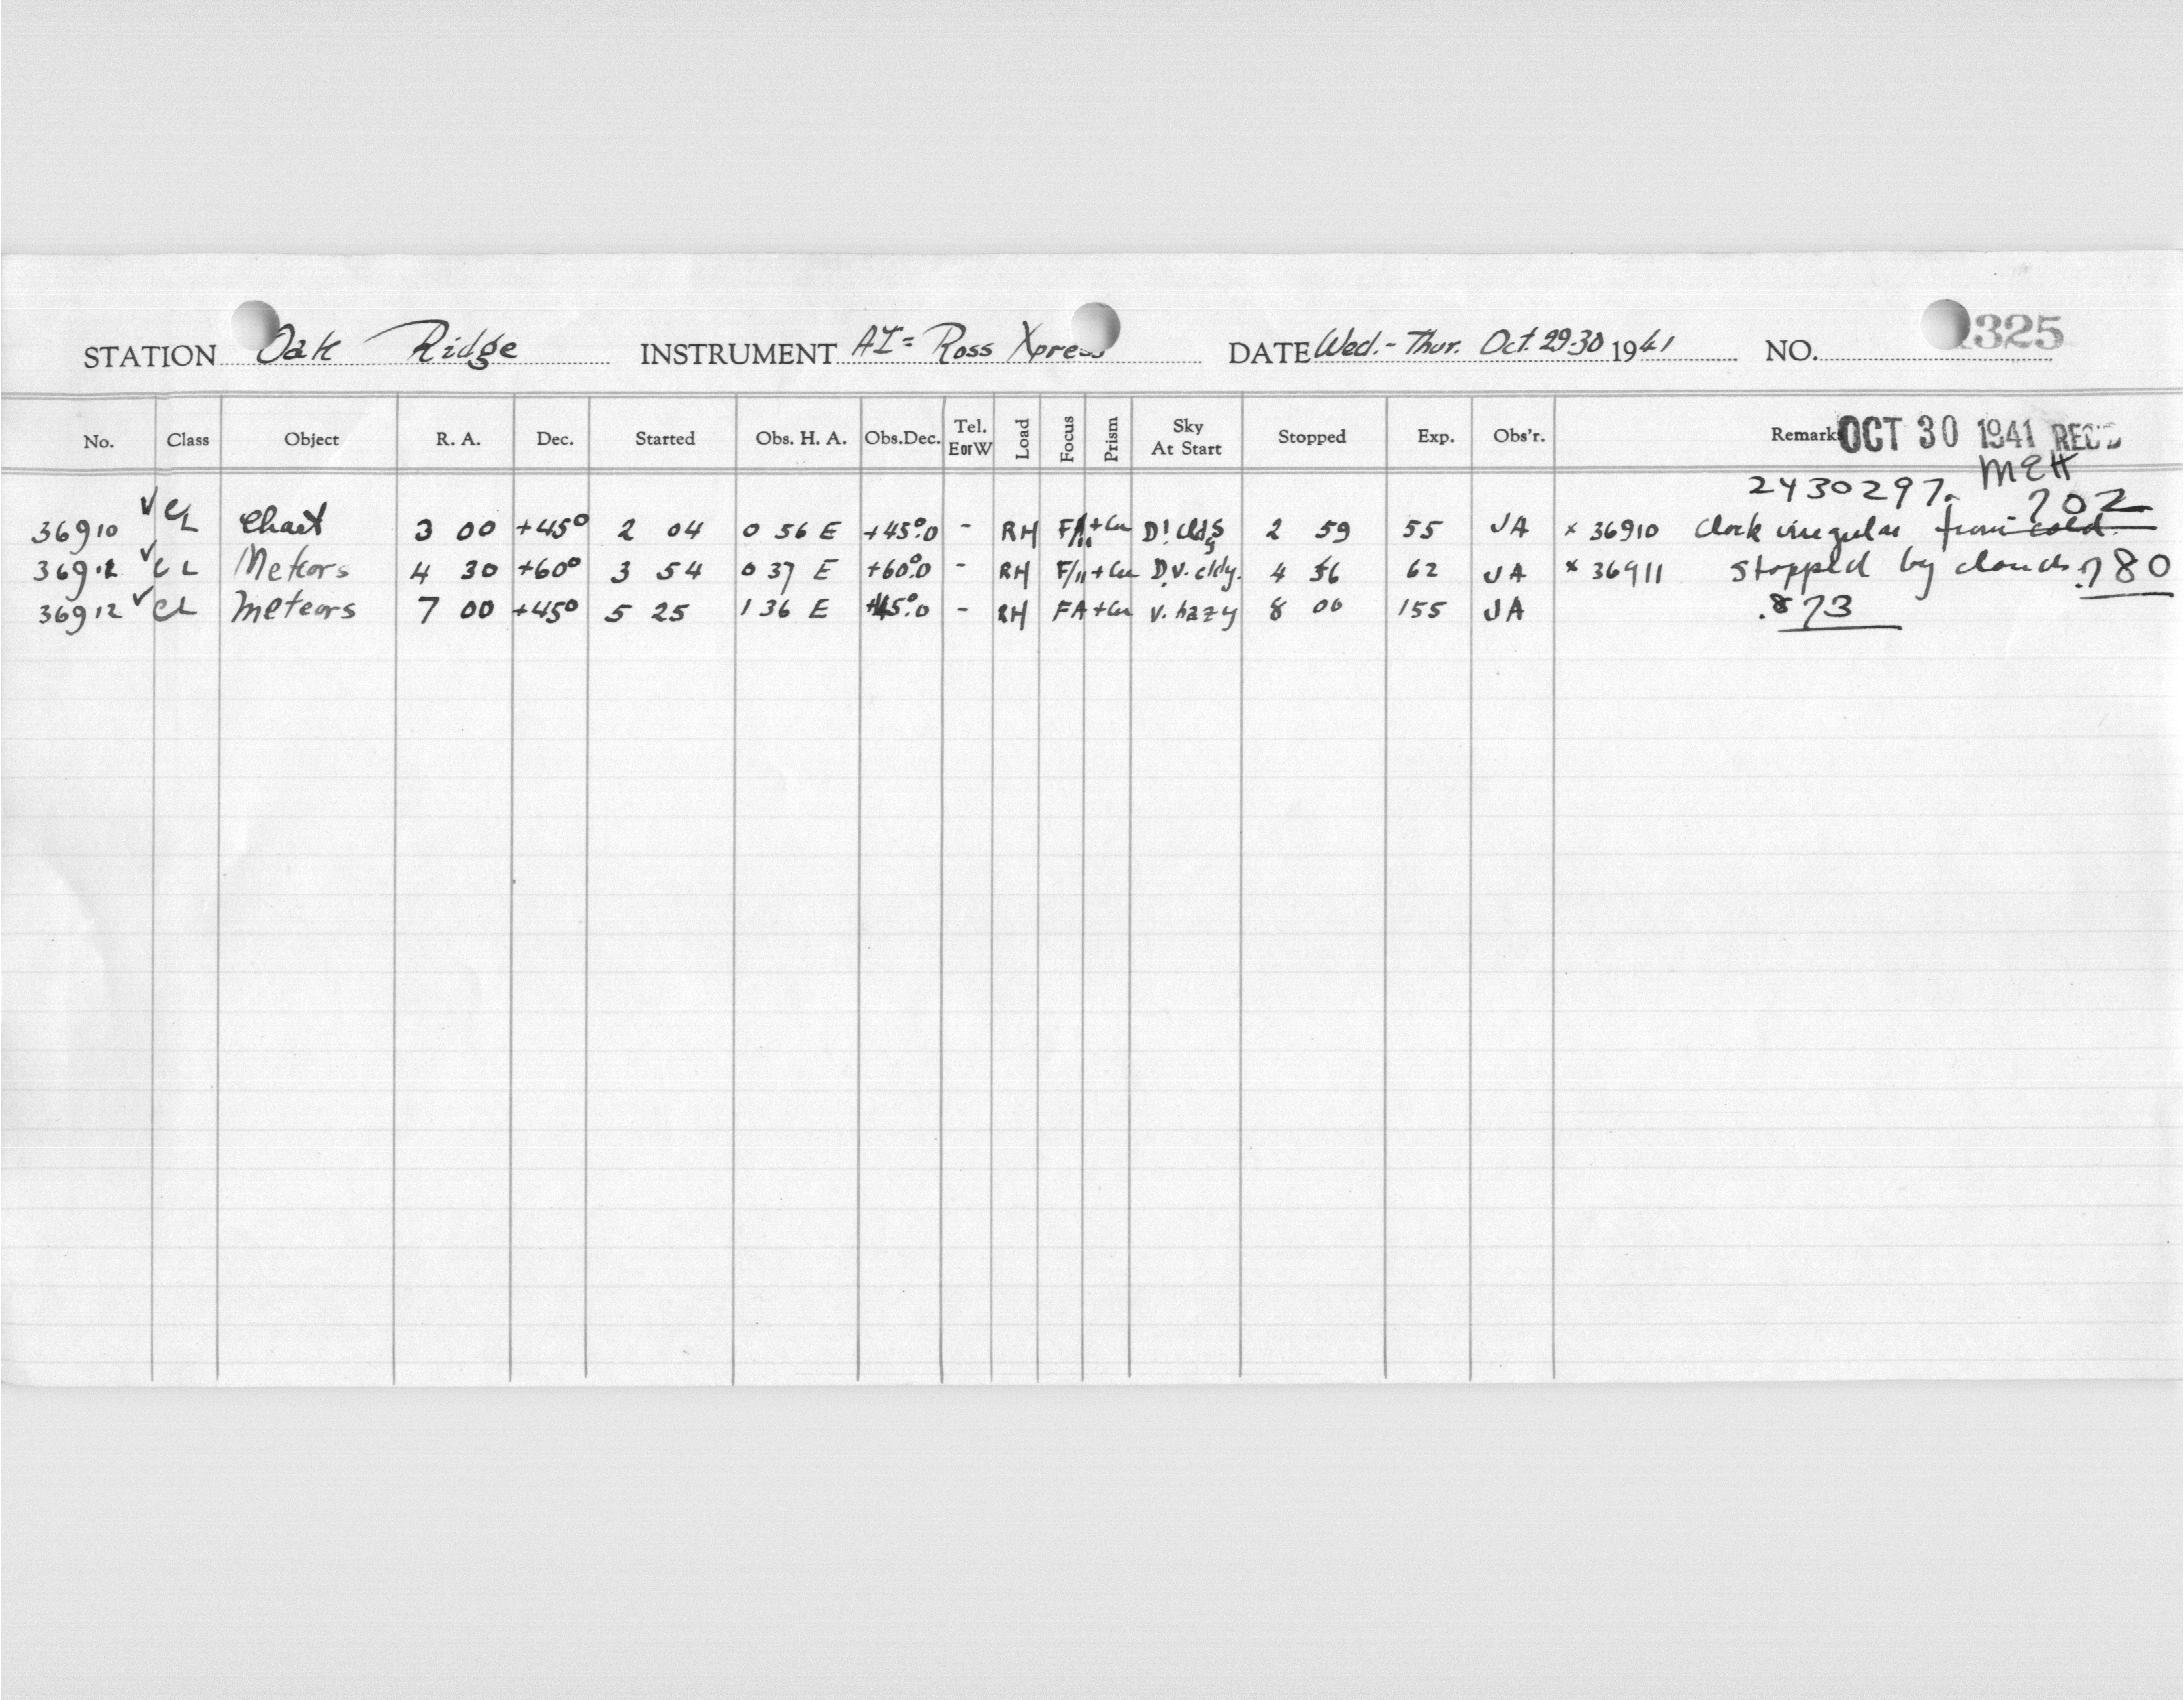 STATION Oak Ridge INSTRUMENT AI = Ross Xpress DATE Wed. - Thur. Oct. 29-30 1941 NO. 325
No. Class Object R. A. Dec. Started Obs. H. A. Obs.Dec. Tel. E or W Load Focus Prism Sky At Start Stopped Exp. Obs'r. Remarks OCT 30 1941 REC'D
MEH
2430297.
36910 ✓ CL Chart 3 00 +45° 2 04 0 56 E +45°.0 - RH 2 59 55 JA × 36910 Clock irregular from cold. 702
✓ CL Meteors 4 30 +60° 3 54 0 37 E +60°.0 - RH F/11 + Cu D.V. cldy. 4 56 62 JA × 36911 Stopped by clouds .780
36912 ✓ CL Meteors 7 00 +45° 5 25 1 36 E +45°.0 - RH FA + Cu V. hazy 8 00 155 JA .873